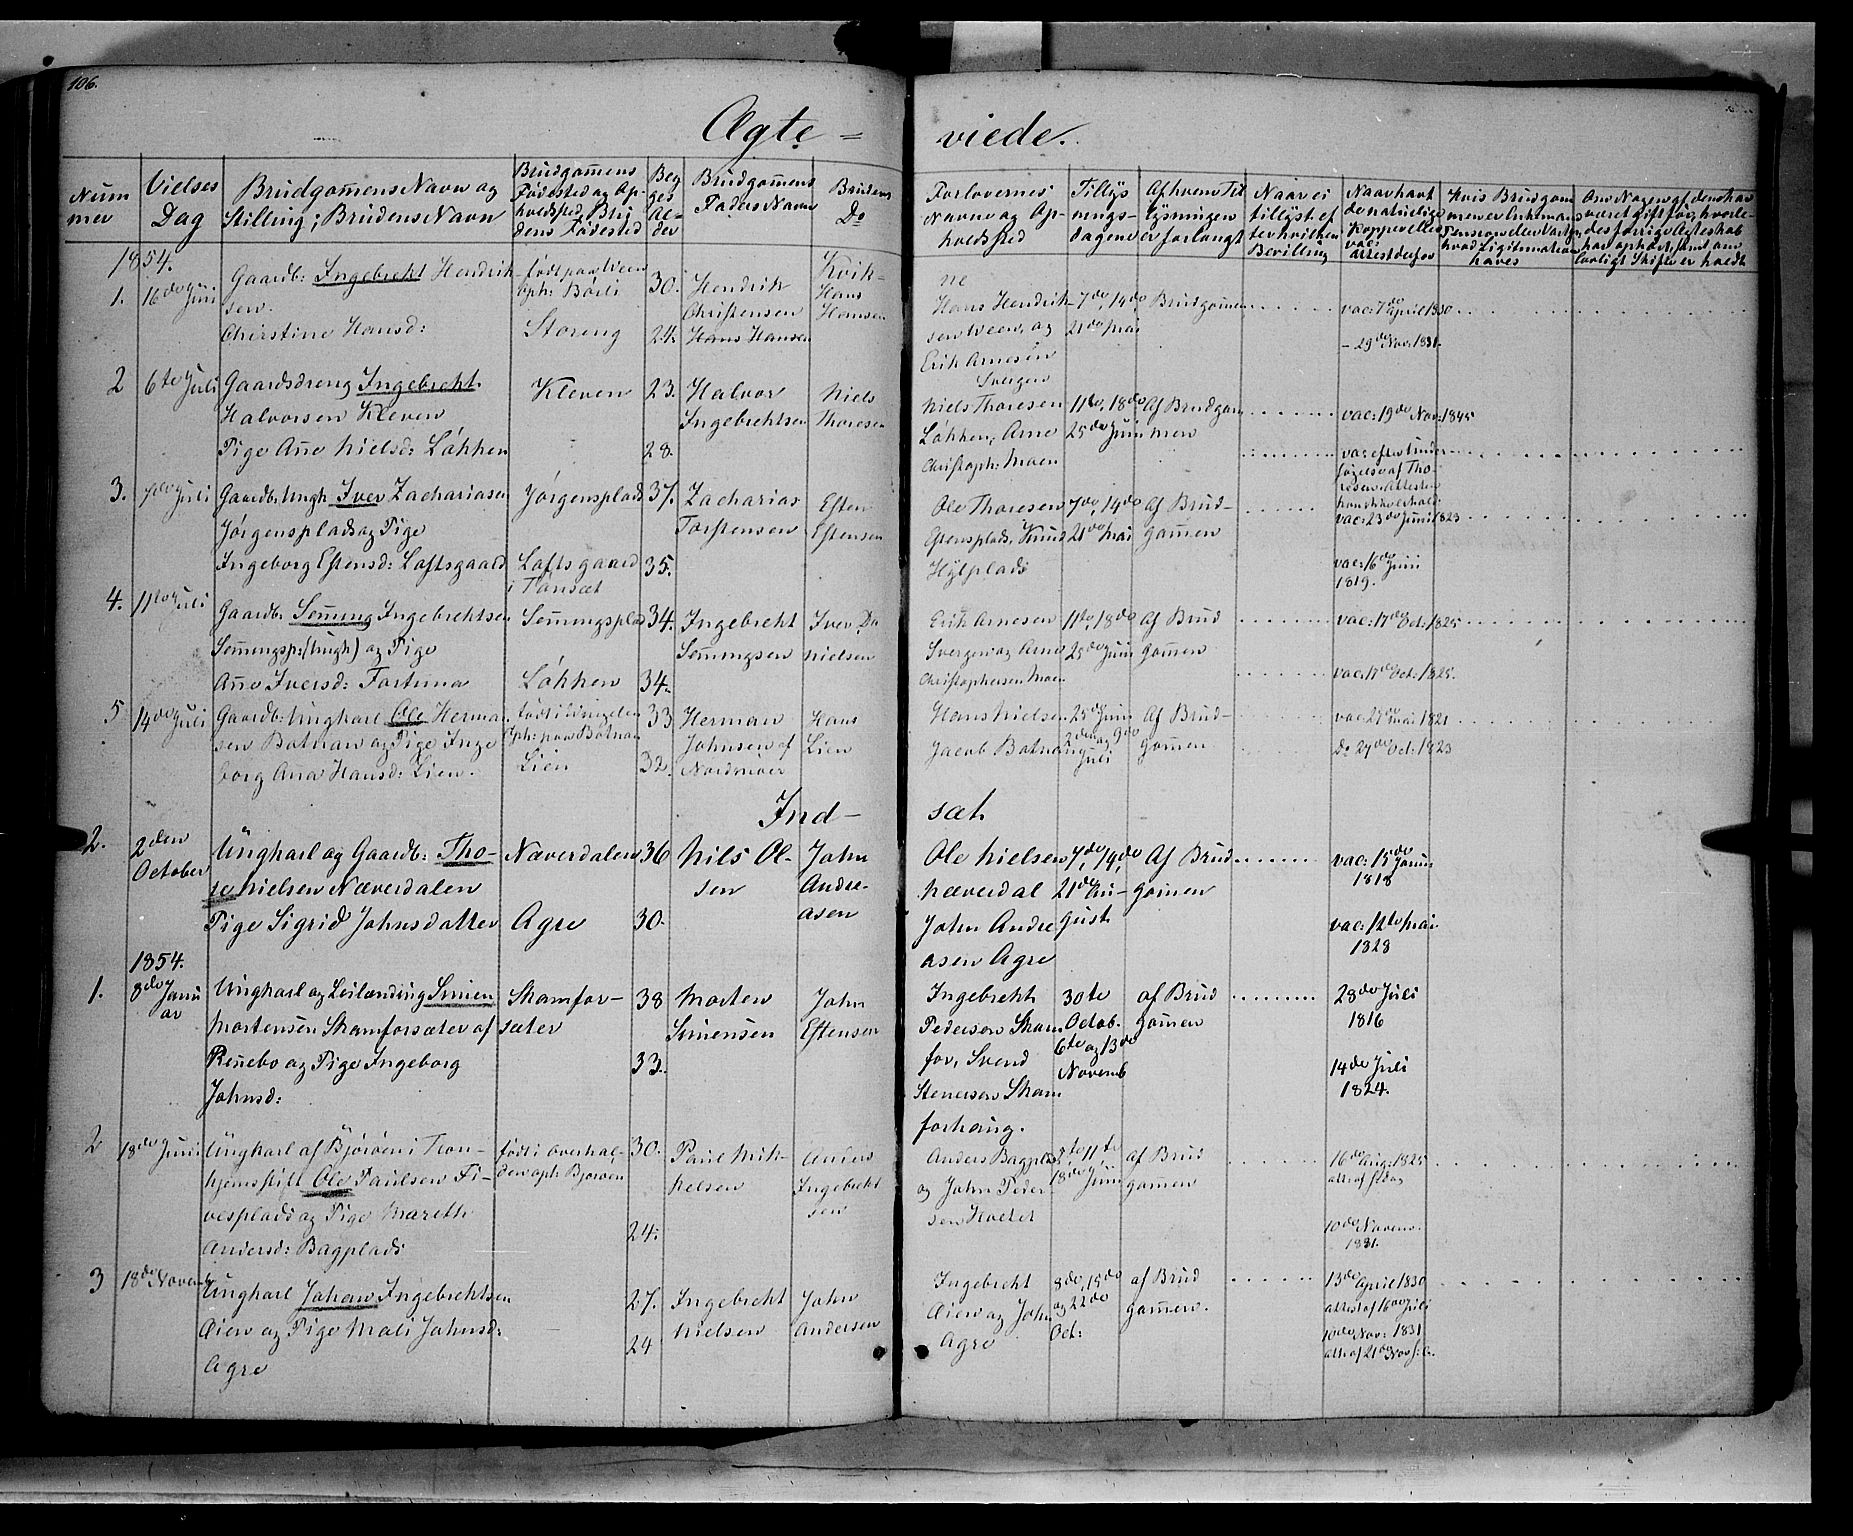 106.
Ægte - viede.
Num mer | Vielses Dag | Brudgommens Navn og Stilling; Brudens Navn | Brudgommens Fødested og Opholdsted, Brudens Fødested | Begges Alder | Brudgommens Faders Navn | Brudens Do | Forlovernes Navne og Opholdsted | Tillysningsdagene | Af hvem Tillysningen er forlangt | Naar ei tillyst efter hvilken Bevilling | Naar havt de naturlige Kopper eller vac: attest derfor
1854.
Kvik- ne
1. 16de Juni
Gaardb: Ingebrekt Hendrik-
sen.
Christine Hansd:
født paa Lien
oph: Børli
Storeng
30.
24.
Hendrik
Christensen
Hans Hansen
Hans
Hansen
Hans Hendrik-
sen Ween, og
Erik Arnesen
Svergen
7de, 14de
21de Mai
Brudgomen
vac: 7de April 1830
- 29de Nov: 1831.
2 6te Juli
Gaardsdreng Ingebrekt
Halvorsen Kleven
Pige Ane Nielsd: Løkken
Kleven
23.
28.
Halvor
Ingebrektsen
Niels
Thoresen
Niels Thoresen
Løkken, Arne
Christoph: Moen
11te, 18de
25de Juni
Af Brudgom
men
vac: 19de Nov: 1845
3. 7de Juli
Gaardb: Ungk: Iver Zachariasen
Jørgensplads og Pige
Ingeborg Estensd: Loftsgaard
Jørgensplads
Loftsgaard
i Tønsæt
37.
35.
Zacharias
Torstensen
Esten
Estensen
Ole Thoresen
Estensplads, Knud
7de, 14de
21de Mai
Af Brud-
gomen
vac: 23de Juni 1823
vac: 16de Juni
1819.
4. 11te Juli
Gaardb: Semming Ingebrektsen
Semmingspl: (Ungk) og Pige
Ane Iversd: Fortuna
Semmingsplads
Løkken
34.
34.
Ingebrekt
Semmingsen
Iver Da
nielsen
Erik Arnesen
Svergen og Arne
Christophersen Moen
11te, 18de
25de Juni
Af Brud
gomen
vac: 17de Oct: 1825
vac: 17de Oct: 1825.
5 14de Juli
Gaardb: Ungkarl Ole Herman
sen Botnan og Pige Inge
borg Ana Hansd: Lien.
oph: paa Botnan
Lien
33
32.
Herman
Johnsen af
Nordmøer
Hans
Lien
Hans Nielsen
Jacob Botnan
25de Juni
2den og 9de
Juli
Af Brud-
gomen
vac: 25de Mai 1821
do 24de Oct: 1823
Ind- sæt.
2. 2den
October
Ungkarl og Gaardb: Tho-
re Nielsen Næverdalen
Pige Sigrid Johnsdatter
Næverdalen
Agre
36
30.
Nils Ol-
sen
John
Andre-
asen
Ole Nielsen
Næverdal
John Andre
asen Agre
7de, 14de
21de Au-
gust
Af Brud
gomen
vac: 15de Januar
1818
vac: 12te Mai
1828
1854.
1. 8de Janu
ar
Ungkarl og Leilænding Simen
Mortensen Skamforsæter af
Renebo og Pige Ingeborg
Johnsd:
Skamfor-
sæter
38
33.
Morten
Simensen
John
Estensen
Ingebrekt
Pedersen Skam
for, Svend
Stenersen Skam
forhaug.
30te
Octob.
6te og 13de
Novemb
af Brud
gomen
28de Juli
1816
14de Juli
1824.
2 18de Juni
Ungkarl af Bjørøen i Tron-
hjems stift Ole Paulsen Fi-
vesplads og Pige Mareth
Andersd: Bagplads
født i Overhal-
den oph: Bjørøen
30.
24.
Paul Mik-
kelsen
Anders
Ingebrekt
sen
Anders Bagplads
og John Peder
sen Hvelet
11te
18de Juni
af Brud
gomen
16de Aug: 1825
att: af
10de Novemb.
1831.
3 18de Novemb
Ungkarl Johan Ingebrektsen
Øien og Pige Mali Johnsd:
Agre
27.
24
Ingebrekt
Nielsen
John
Andersen
Ingebrekt
Øien og John
Agre
8de, 15de
og 22de
Oct:
af Brud
gomen.
13de April 1830
attest af 16de Juli
10de Nov: 1831
att: af 21de Nov